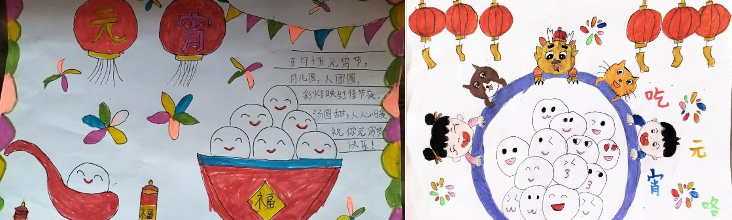 元
宵
正月十五元宵节,
月儿圆,人团圆,
彩灯映红佳节夜,
汤圆甜,人人
祝你元宵节
快乐!
福
福
吃
元
宵
咯